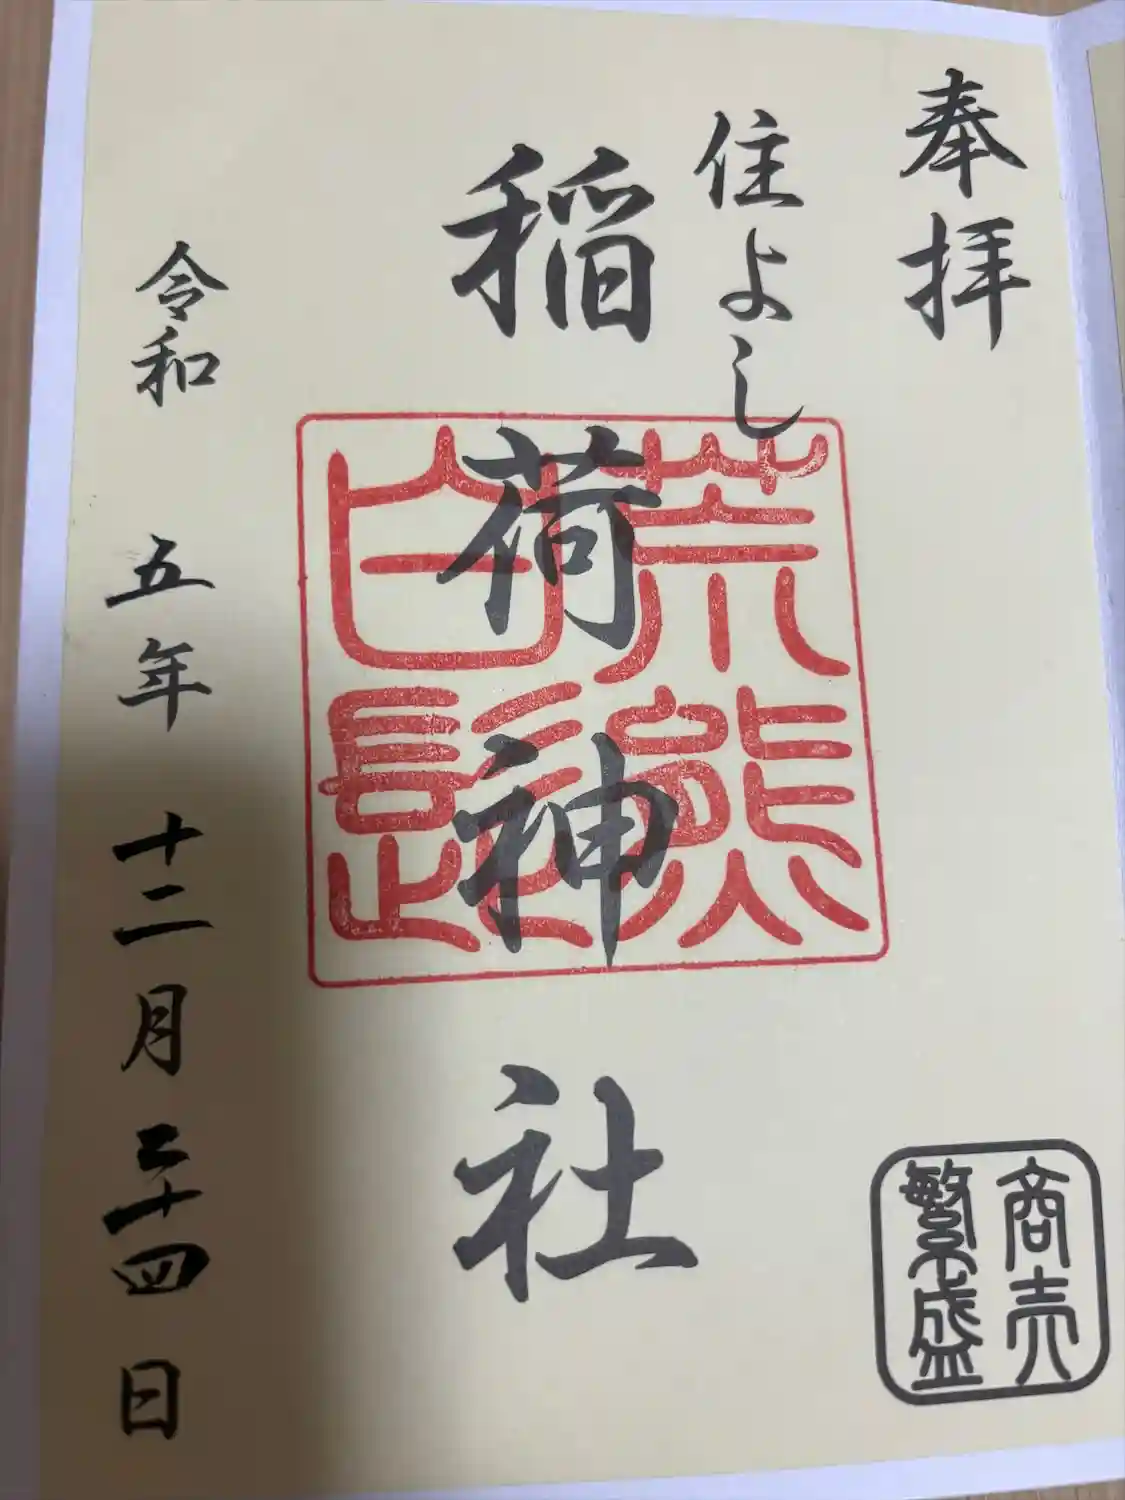 奉拝
住よし
稲荷神社
荒熊
白髭
令和五年十二月二十四日
商売
繁盛